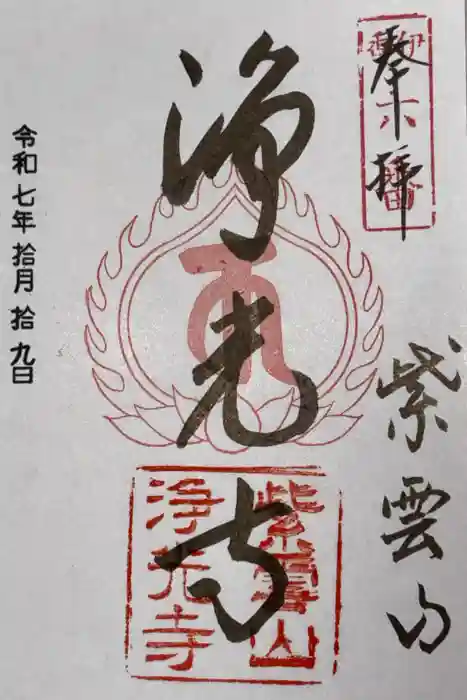 奉拝
六番
紫雲山
浄光寺
紫雲山
浄光寺
令和七年 拾月 拾九日